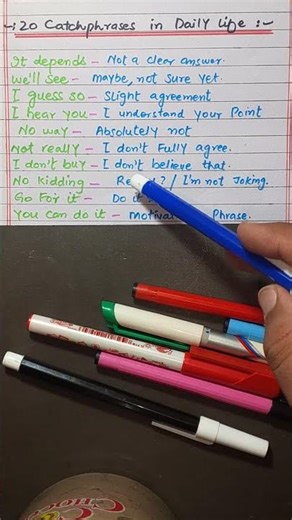 -:20 Catchphrases in Daily Life :-
It depends - Not a clear answer.
We'll see - maybe, not sure yet.
I guess so - Slight agreement
I hear you - I understand your Point
No way - Absolutely not
Not really - I don't Fully agree.
I don't buy - I don't believe that.
No Kidding - ? / I'm not Joking.
Go For it - Do it
You can do it - Phrase.